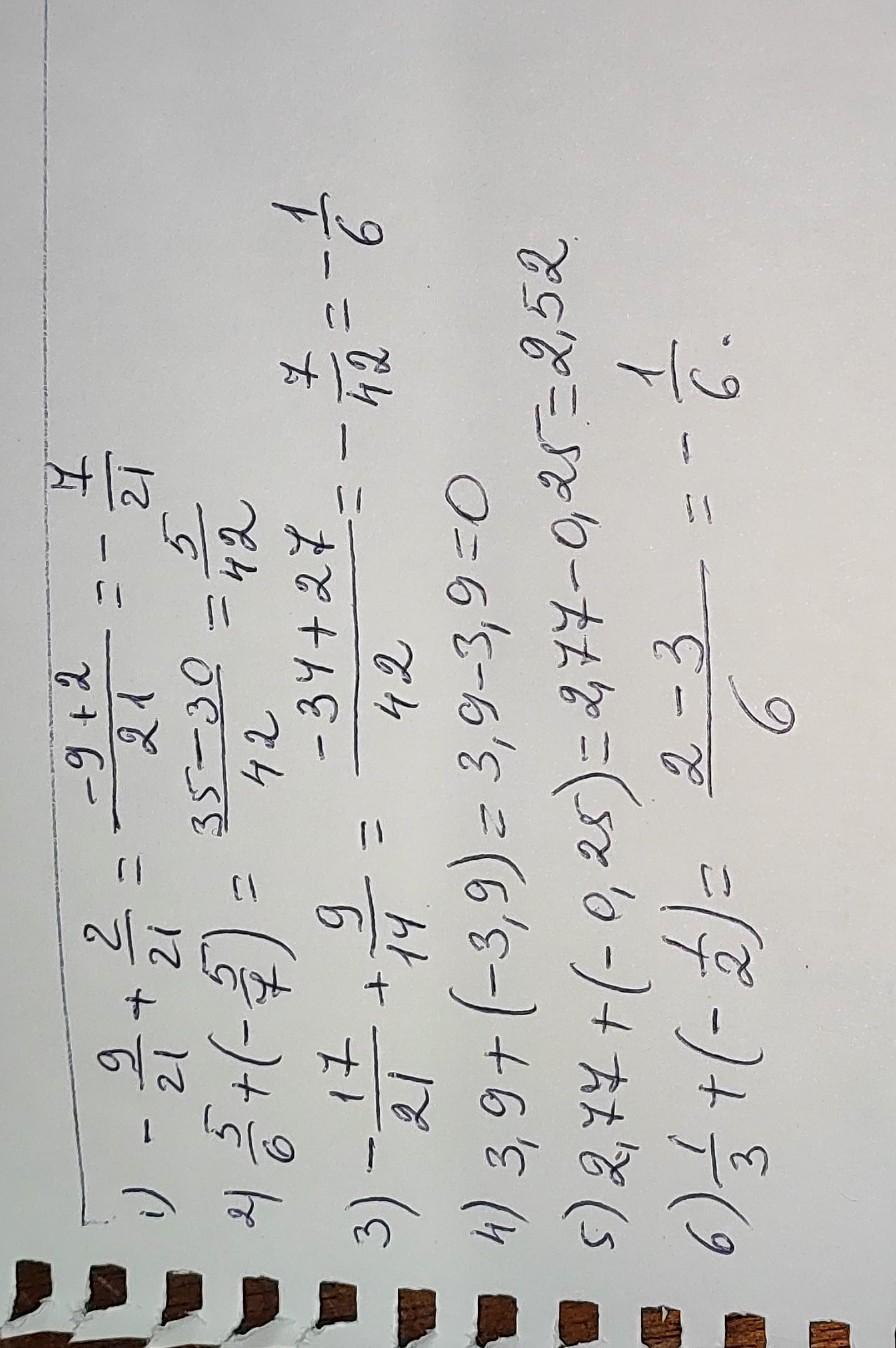 1) - 9/21 + 2/21 = (-9+2)/21 = - 7/21
2) 5/6 + (- 5/7) = (35-30)/42 = 5/42
3) - 17/21 + 9/14 = (-34+27)/42 = - 7/42 = - 1/6
4) 3,9 + (-3,9) = 3,9 - 3,9 = 0
5) 2,77 + (-0,25) = 2,77 - 0,25 = 2,52
6) 1/3 + (- 1/2) = (2-3)/6 = - 1/6.